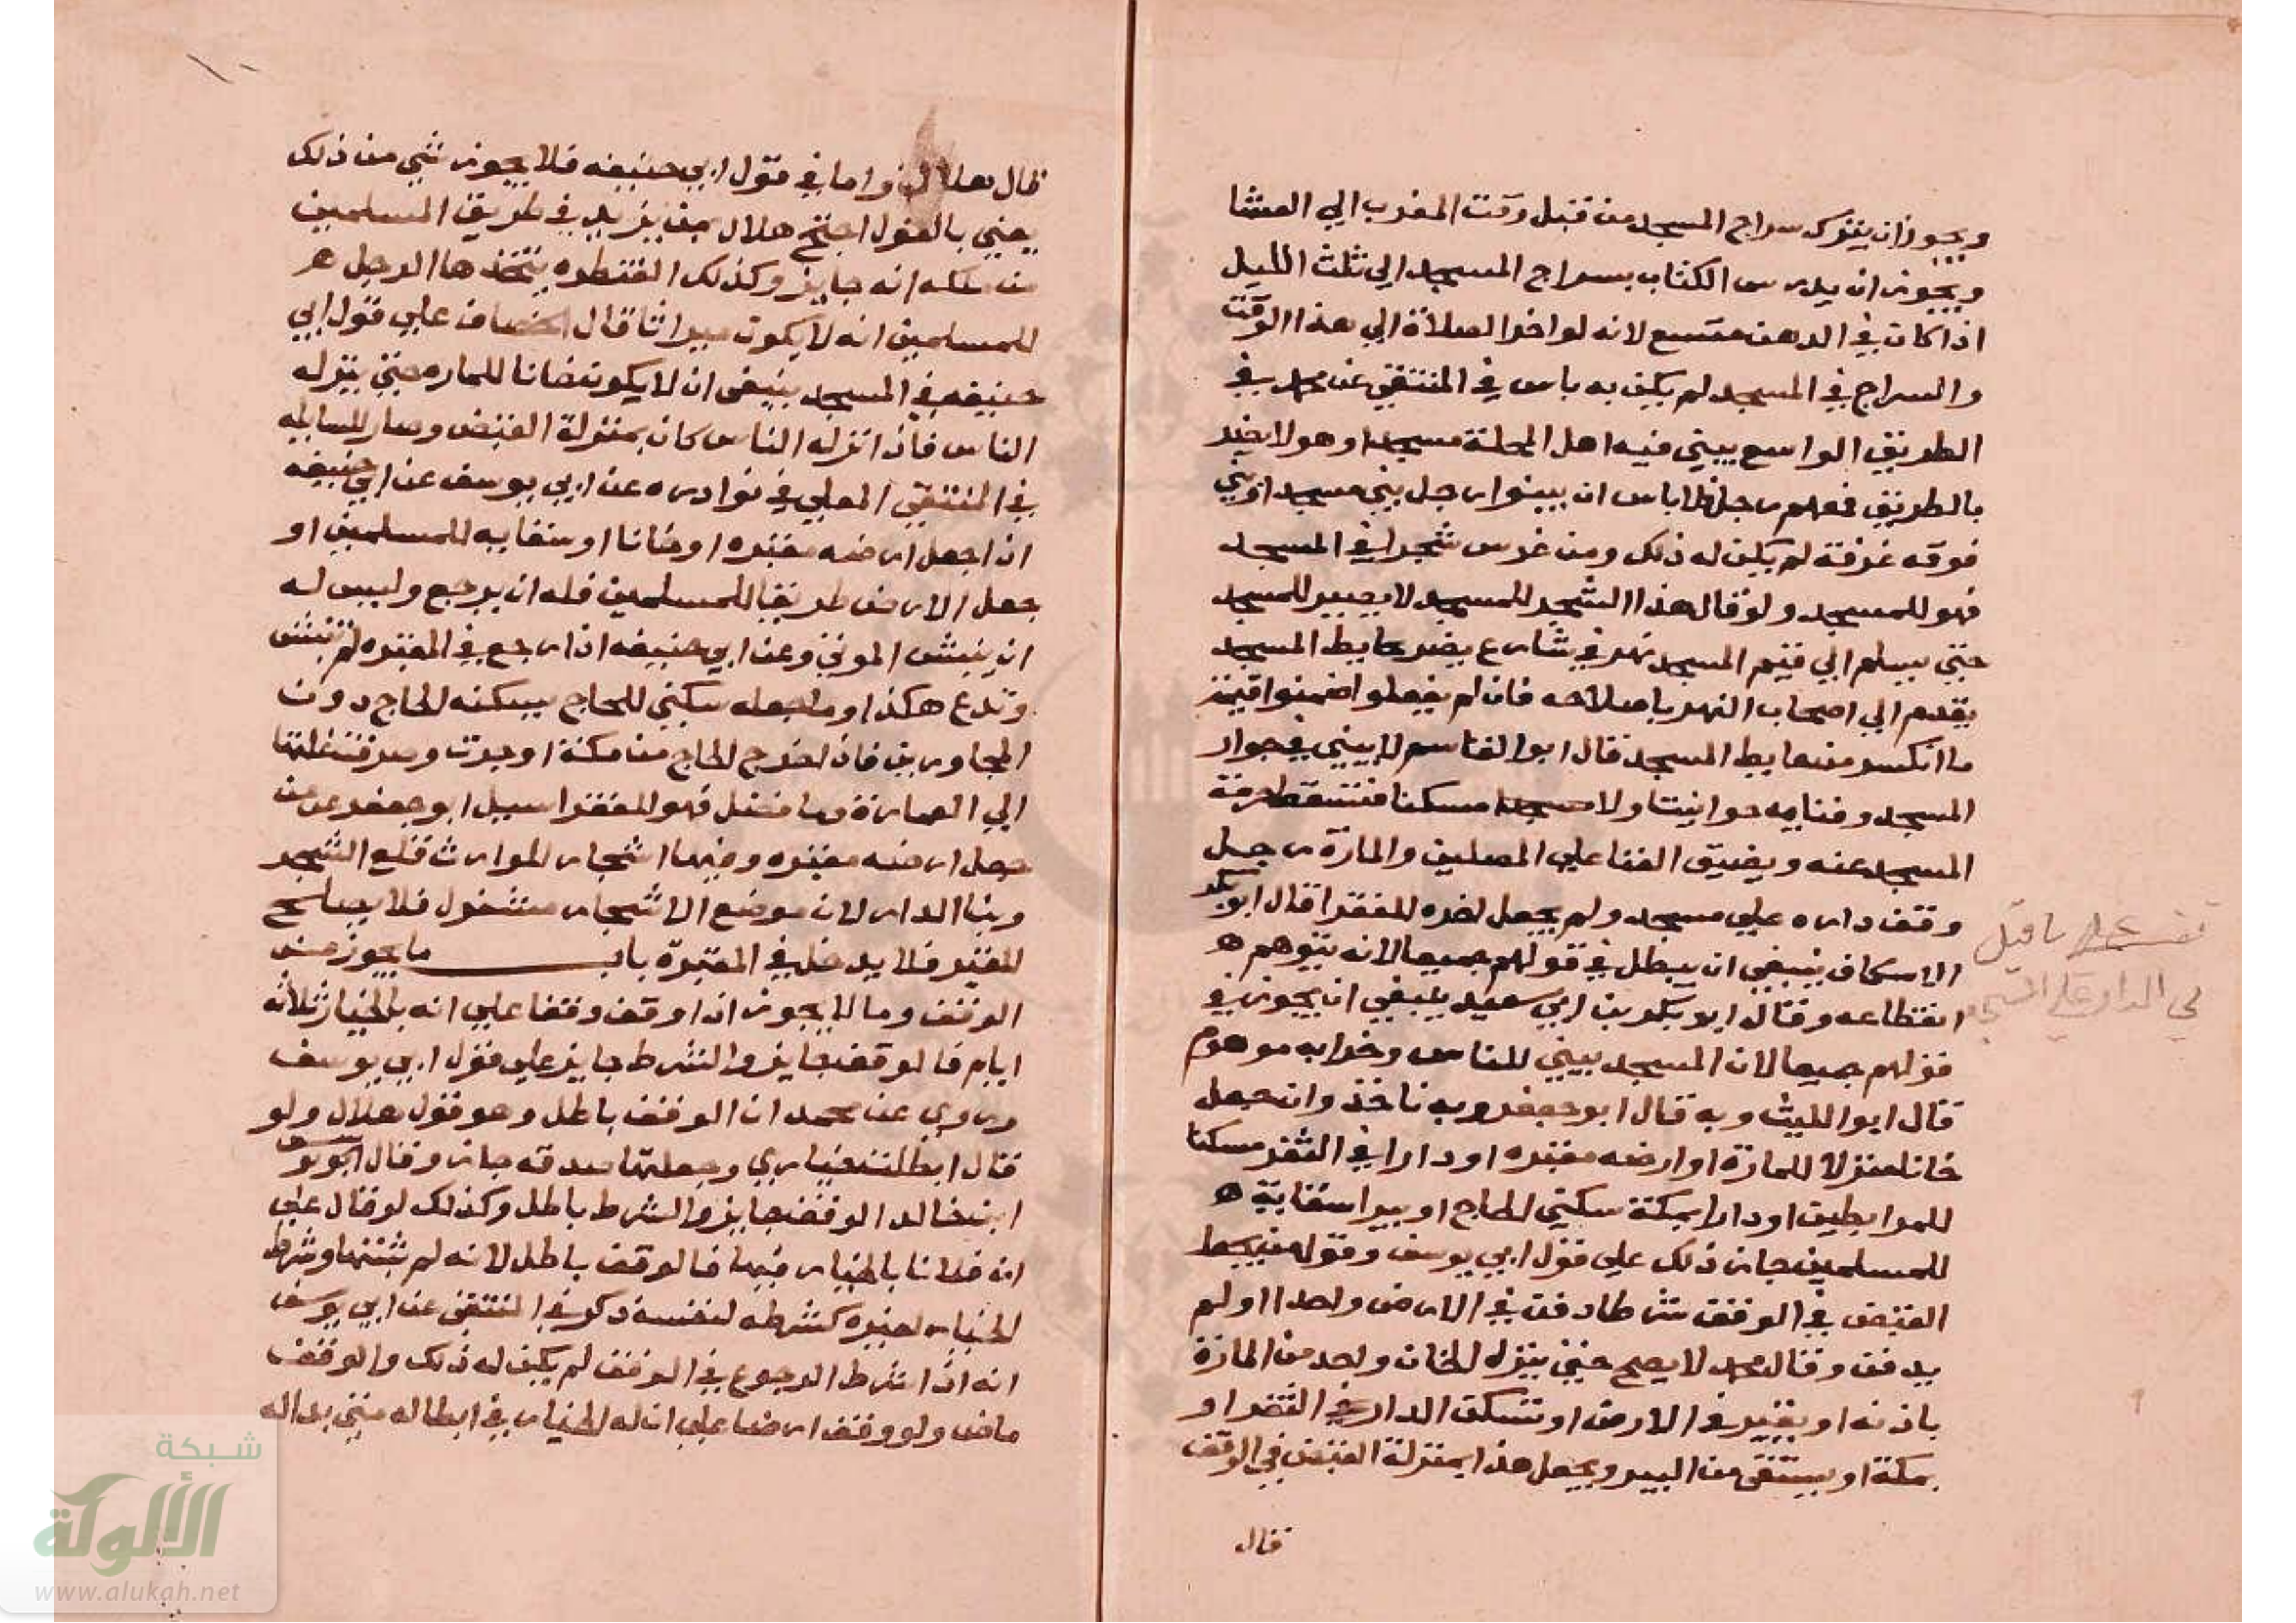 ويجوز ان يترك سراج المسجد من قبل وقت المغرب الي العشا
ويجوز ان يدرس الكتاب بسراج المسجد الي ثلث الليل
اذا كان في الدهن متسع لانه لو اخر الصلاة الي هذا الوقت
والسراج في المسجد لم يكن به باس في المنتقي عن محمد في
الطريق الواسع يبني فيه اهل المحلة مسجدا وهو لا يضر
بالطريق فمنعهم رجل فلا باس ان يبنوا رجل بني مسجدا وبني
فوقه غرفة لم يكن له ذلك ومن غرس شجرا في المسجد
فهو للمسجد ولو قال هذا الشجر للمسجد لا يصير للمسجد
حتي يسلم الي قيم المسجد نهر في شارع يضر بحايط المسجد
يقدم الي اصحاب النهر باصلاحه فان لم يفعلوا ضمنوا قيمة
ما انكسر من حايط المسجد قال ابو القاسم لا يبني في جوار
المسجد وفنايه حوانيت ولا مسكنا فتسقط حرمة
المسجد عنه ويضيق الفنا علي المصلين والمارة رجل
وقف داره علي مسجد ولم يجعل اخره للفقرا قال ابو بكر
الاسكاف ينبغي ان يبطل في قولهم جميعا لانه يتوهم
انقطاعه وقال ابو بكر بن ابي سعيد ينبغي ان يجوز في
قولهم جميعا لان المسجد يبني للناس وخرابه موهوم
قال ابو الليث وبه قال ابو جعفر وبه ناخذ وان جعل
خانا منزلا للمارة او ارضه مقبره او دارا في الثغر مسكنا
للمرابطين او دارا بمكة سكني الحاج او بيرا سقاية
للمسلمين جاز ذلك علي قول ابي يوسف وقوله
القبض في الوقف شرطا دفن في الارض واحدا او لم
يدفن وقال محمد لا يصح حتي ينزل الخان واحد من المارة
باذنه او يقبر في الارض او تسكن الدار في الثغر او
بمكة او يستقي من البير ويجعل هذا بمنزلة القبض في الوقف
قال
في الدار علي المسجد
قال هلال واما في قول ابي حنيفه فلا يجوز شي من ذلك
يعني بالقول احتج هلال بمن يزيد في طريق المسلمين
من ملكه انه جايز وكذلك القنطره يتخذها الرجل
للمسلمين انه لا يكون ميراثا قال الخصاف علي قول ابي
حنيفه في المسجد ينبغي ان لا يكون خانا للمارة حتي ينزله
الناس فاذا نزله الناس كان بمنزلة القبض وصار للسابله
في المنتقي المعلي في نوادره عن ابي يوسف عن ابي حنيفه
اذا جعل ارضه مقبره او خانا او سقايه للمسلمين او
جعل الارض طريقا للمسلمين فله ان يرجع وليس له
ان ينبش الموتي وعن ابي حنيفه اذا رجع في المقبره لم تنبش
وتدع هكذا وما جعله سكني للحاج يسكنه الحاج دون
المجاورين فاذا خرج الحاج من مكة اوجرت وصرفت غلتها
الي العمارة وما فضل فهو للفقرا سيل ابو جعفر عن من
جعل ارضه مقبره وفيها اشجار للوارث قلع الشجر
وبنا الدار لان موضع الاشجار مشغول فلا يصلح
للقبر فلا يدخل في المقبرة باب ما يجوز من
الوقف وما لا يجوز اذا وقف وقفا علي انه بالخيار ثلاثة
ايام فالوقف جايز والشرط جايز علي قول ابي يوسف
وروي عن محمد ان الوقف باطل وهو قول هلال ولو
قال ابطلت خياري وجعلتها صدقه جاز وقال يوسف
ابن خالد الوقف جايز والشرط باطل وكذلك لو قال علي
ان فلانا بالخيار فيها فالوقف باطل لانه لم يثبتها وشرط
الخيار لغيره كشرطه لنفسه ذكر في المنتقي عن ابي يوسف
انه اذا شرط الرجوع في الوقف لم يكن له ذلك والوقف
ماض ولو وقف ارضا علي ان له الخيار في ابطاله متي بدا له
شبكة
الألوكة
www.alukah.net